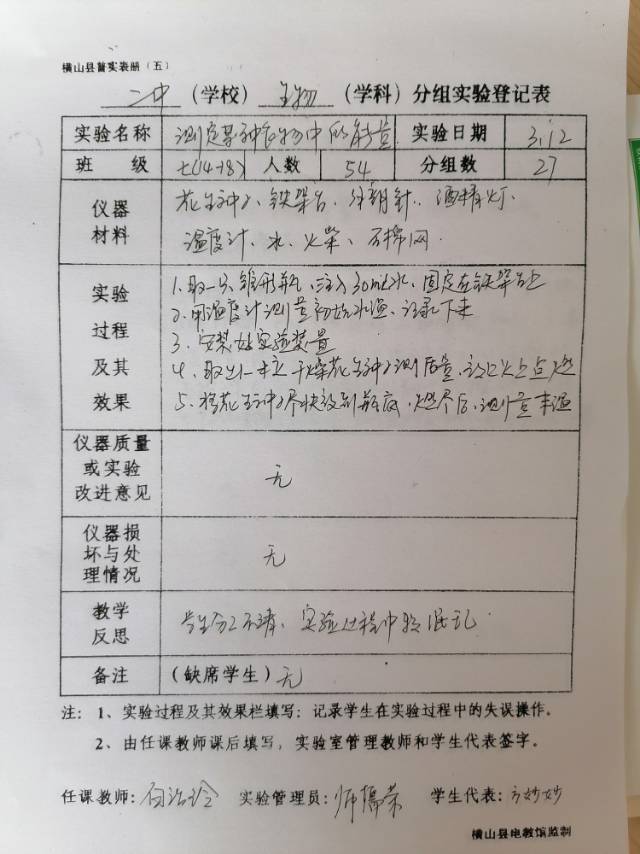 横山县普实表册（五）
二中（学校）生物（学科）分组实验登记表
实验名称 测定某种食物中的能量 实验日期 3.12
班级 七(14-18) 人数 54 分组数 27
仪器材料 花生种子、铁架台、解剖针、酒精灯、
温度计、水、火柴、石棉网.
实验过程及其效果
1.取一只锥形瓶,注入30mL水,固定在铁架台上
2.用温度计测量初始水温、记录下来
3.安装好实验装置
4.取出一粒干燥花生种子测质量,放火上点燃
5.将花生种子尽快放到瓶底,燃尽后,测量末温
仪器质量或实验改进意见 无
仪器损坏与处理情况 无
教学反思 学生分工不清、实验过程中较混乱.
备注 (缺席学生) 无
注：1、实验过程及其效果栏填写：记录学生在实验过程中的失误操作。
2、由任课教师课后填写，实验室管理教师和学生代表签字。
任课教师: 实验管理员: 学生代表: 方妙妙
横山县电教馆监制